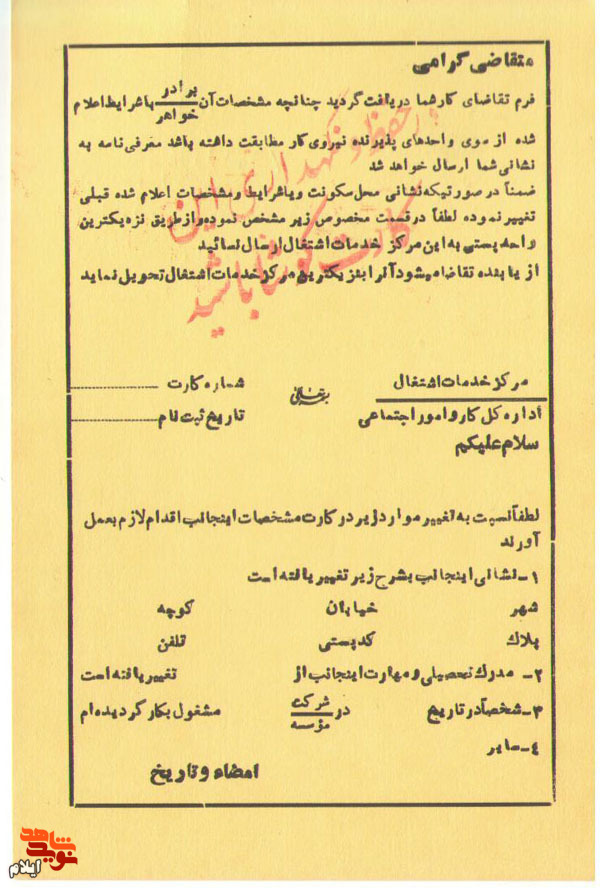 متقاضی گرامی
فرم تقاضای کار شما دریافت گردید چنانچه مشخصات آن برادر / خواهر با شرایط اعلام
شده از سوی واحدهای پذیرنده نیروی کار مطابقت داشته باشد معرفی نامه به
نشانی شما ارسال خواهد شد
ضمناً در صورتیکه نشانی محل سکونت ویا شرایط ومشخصات اعلام شده قبلی
تغییر نموده لطفاً در قسمت مخصوص زیر مشخص نموده واز طریق نزدیکترین
واحد پستی به این مرکز خدمات اشتغال ارسال نمائید
از یابنده تقاضا میشود آنرا بنزدیکترین مرکز خدمات اشتغال تحویل نماید
در حفظ و نگهداری این
کارت کوشا باشید
مرکز خدمات اشتغال
شماره کارت
اداره کل کار و امور اجتماعی
تاریخ ثبت نام
سلام علیکم
لطفاً نسبت به تغییر موارد زیر در کارت مشخصات اینجانب اقدام لازم بعمل
آورند
۱- نشانی اینجانب بشرح زیر تغییر یافته است
شهر خیابان کوچه
پلاک کدپستی تلفن
۲- مدرک تحصیلی و مهارت اینجانب از تغییر یافته است
۳- شخصاً در تاریخ در شرکت / مؤسسه مشغول بکار گردیده ام
۴- سایر
امضاء و تاریخ
نوید شاهد
ایلام